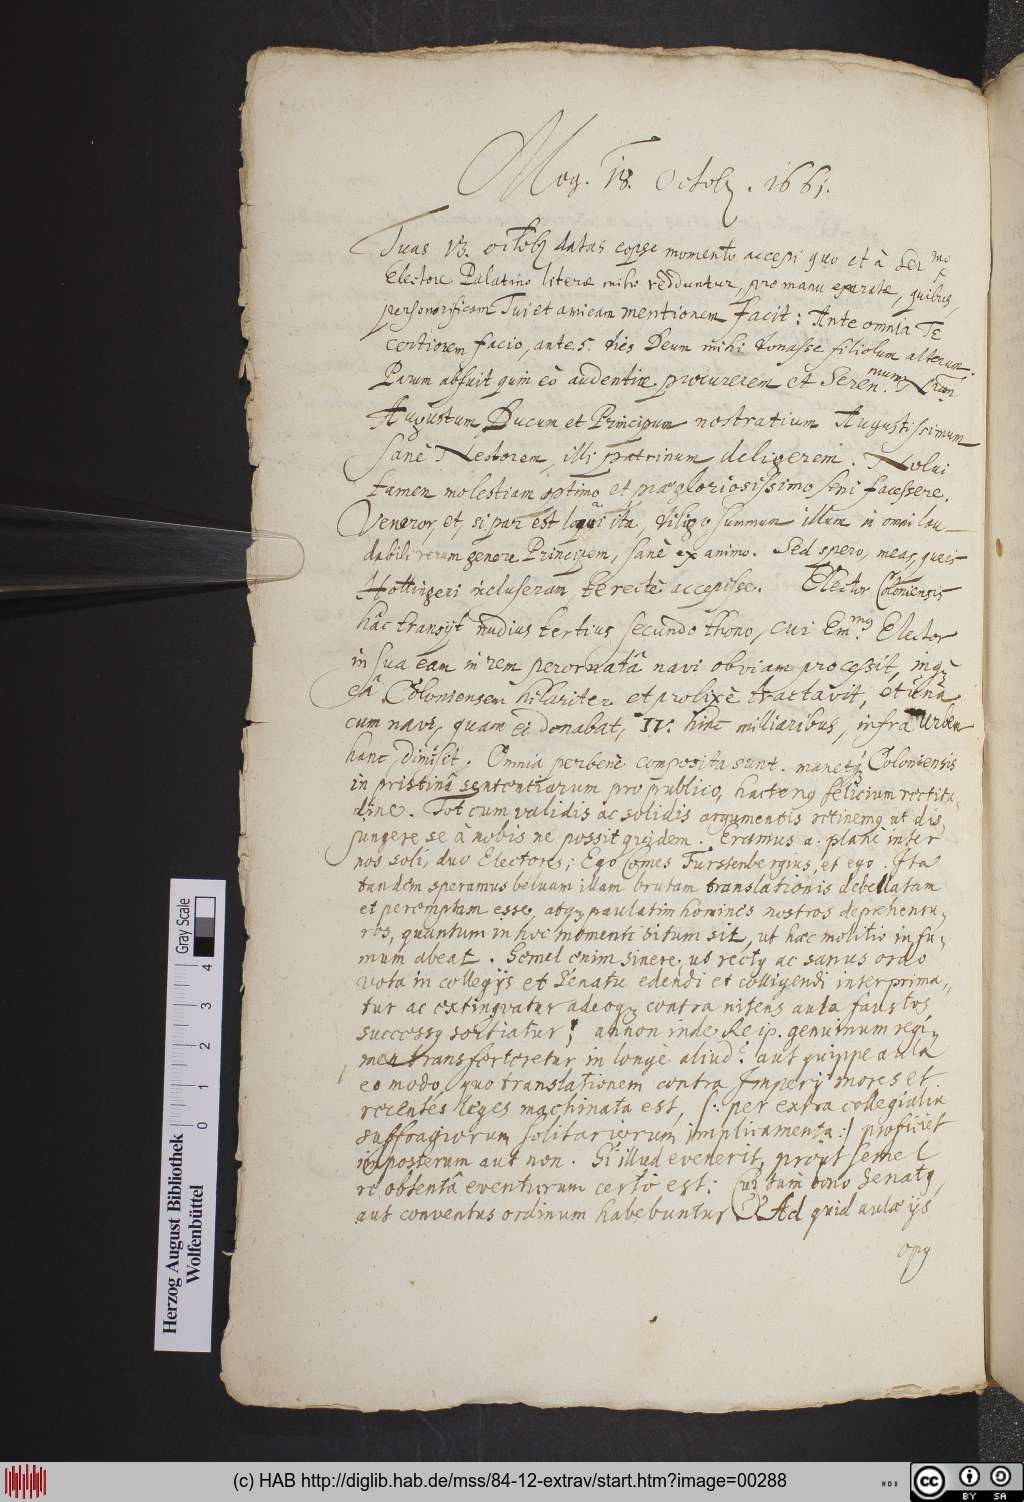 Mog. 18. Octob. 1661.
Tuas 13. Octob datas eopse momento accepi quo et à Ser mo
Electore Palatino literæ mihi redduntur, pro manu exaratæ, quibus
perhonorificam Tui et amicam mentionem facit: Ante omnia Te
certiorem facio, ante 5. dies Deum mihi donasse filiolum alterum.
Parum abfuit quin eò audentiæ procurerem et Seren. mum Nrm
Augustum Ducum et Principum nostratium Augustissimum
sanè Nestorem, illi patrinum deligerem. Nolui
tamen molestiam optimo et prægloriosissimo seni facessere.
Veneror, et, si par est loqui ita, diligo summum illum in omni lau-
dabili rerum genere Principem, sanè ex animo. Sed spero, meas, queis
Hottingeri incluseram te rectè accepisse. Elector Coloniensis
hâc transijt nudius tertius secundo Rheno, cui Em. mus Elector
in sua eam in rem perornatâ navi obviam processit, inq
eâ Coloniensem hilariter et prolixè tractavit, et unâ
cum navi, quam ei donabat, IV. hinc milliaribus, infra Urbem
hanc, dimisit. Omnia perbenè composita sunt. manetq Coloniensis
in pristinâ sententiarum pro publico, hactenq felicium rectitu-
dine. Tot eum validis ac solidis argumentis retinemq ut dis
jungere se à nobis ne possit quidem. Eramus a. planè inter
nos soli, duo Electores; Ego Comes Furstenbergius, et ego. Ita
tandem speramus beluam illam brutam translationis debellatam
et peremptam esse, atq paulatim homines nostros deprehensu-
ros, quantum in hoc momenti situm sit, ut hæc molitio in fu-
mum abeat. Semel enim sinere, ut rectq ac sanus ordo
vota in collegijs et Senatu edendi et colligendi interprima-
tur ac extinguatur adeoq contra nitens aula faustos
successq sortiatur; annon inde Reip. genuinum regi-
men transferretur in longè aliud? aut quippe aula
eo modo, quo translationem contra Imperij mores et
recentes leges machinata est, /: per extra collegialia
suffragiorum solitariorum implicamenta :/ proficiet
in posterum aut non. Si illud evenerit, prout semel
re obtentâ eventurum certò est: Cui tum bono Senatq,
aut conventus ordinum habebuntur? Ad quid aulæ ijs
opq
Herzog August Bibliothek
Wolfenbüttel
Gray Scale
0 1 2 3 4
(c) HAB http://diglib.hab.de/mss/84-12-extrav/start.htm?image=00288
cc BY SA